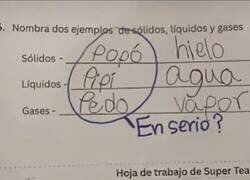 5. Nombra dos ejemplos de sólidos, líquidos y gases
Sólidos - Popó hielo
Líquidos - Pipí agua
Gases - Pedo vapor
En serio?
Hoja de trabajo de Super Tea